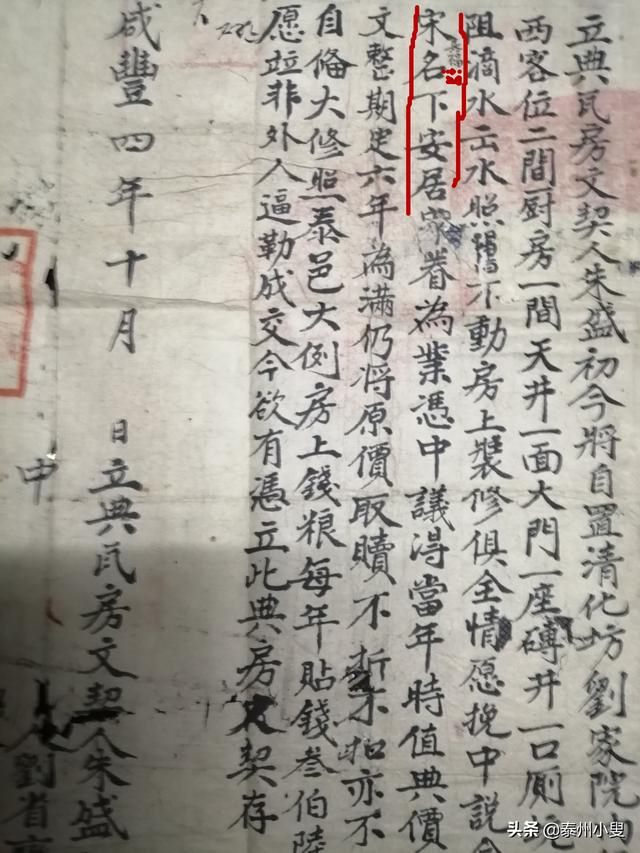 立典瓦房文契人朱盛初今將自置清化坊劉家院內
西客位二間厨房一間天井一面大門一座磚井一口厠
阻滴水云水照舊不動房上裝修俱全情愿挽中說合
宋名下安居眷為業憑中議得當年時值典價
文整期定六年為滿仍將原價取贖不折不扣亦不
自俻大修照泰邑大例房上錢粮每年貼錢叁伯陸
愿並非外人逼勒成交今欲有憑立此典房文契存
咸豐四年十月 日立典瓦房文契人朱盛
中 人劉省
头条 @泰州小叟